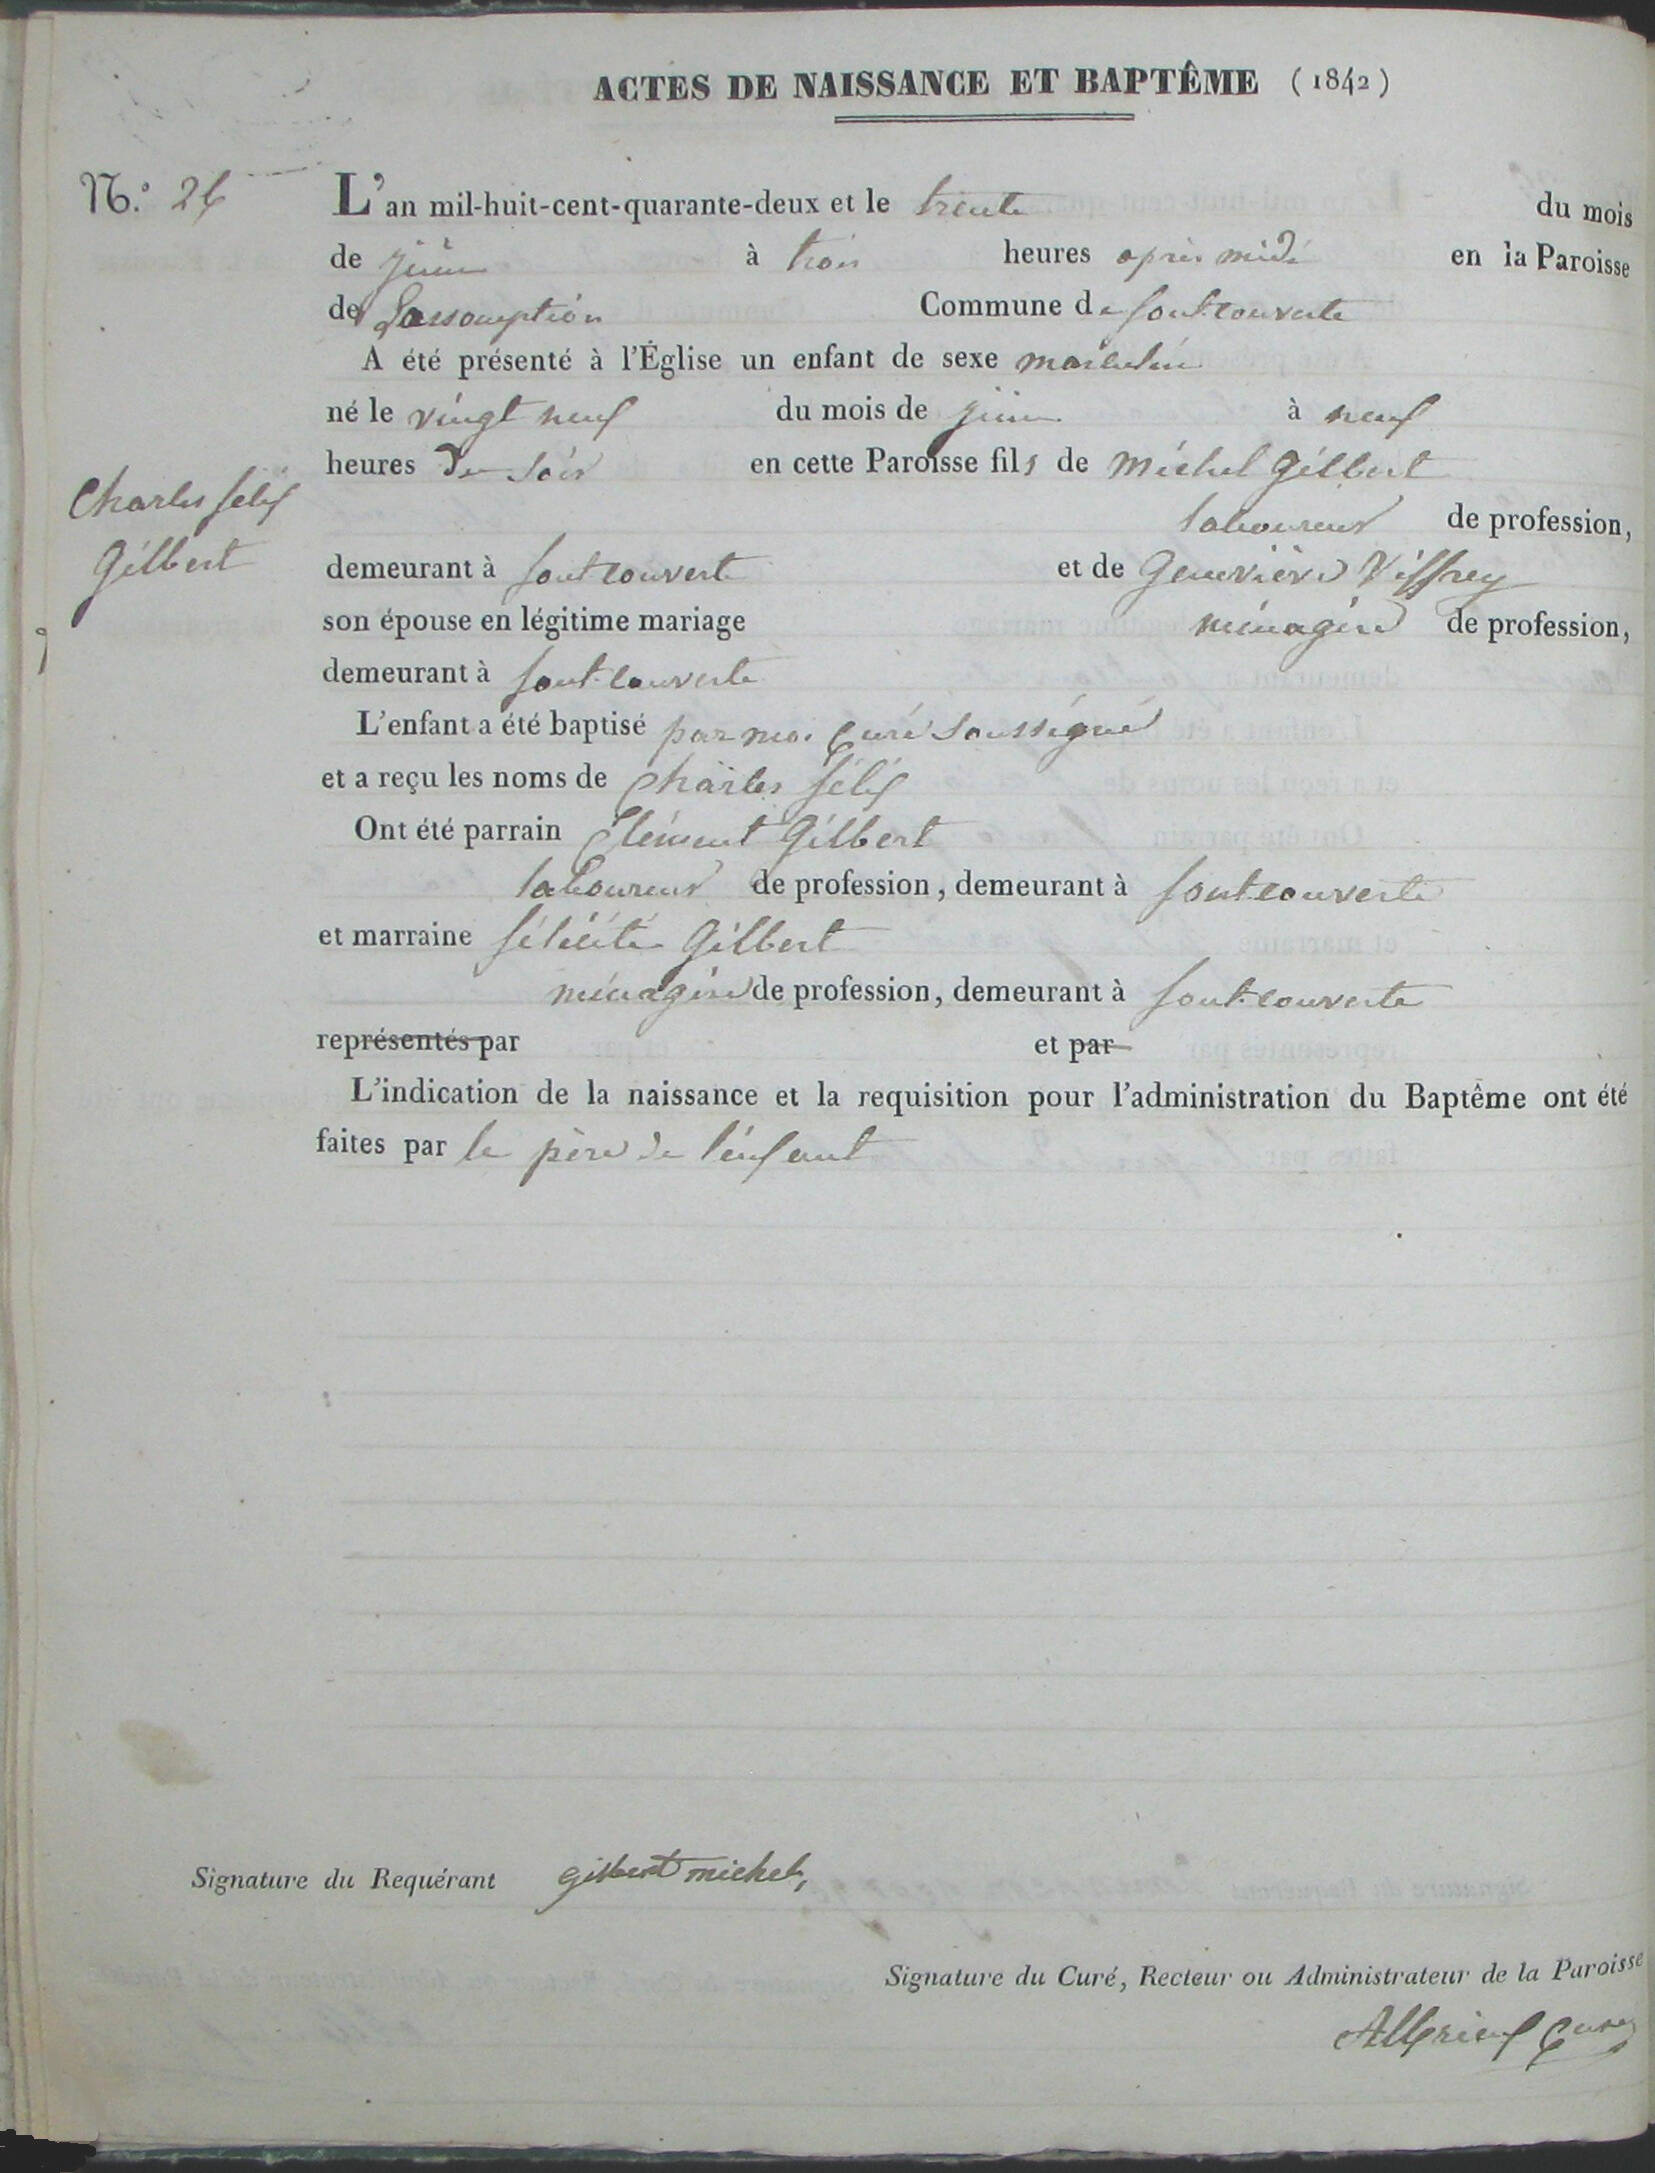 ACTES DE NAISSANCE ET BAPTÊME (1842)
N.° 26
L'an mil-huit-cent-quarante-deux et le trente du mois
de juin à trois heures après midi en la Paroisse
de Lassomption Commune de fontcouverte
A été présenté à l'Église un enfant de sexe masculin
né le vingt neuf du mois de juin à neuf
heures du soir en cette Paroisse fils de Michel Gilbert
laboureur de profession,
Charles félix
Gilbert
demeurant à fontcouverte et de Geneviève Viffrey
son épouse en légitime mariage ménagère de profession,
demeurant à fontcouverte
L'enfant a été baptisé par moi Curé soussigné
et a reçu les noms de Charles félix
Ont été parrain Clément Gilbert
laboureur de profession, demeurant à fontcouverte
et marraine félicité Gilbert
ménagère de profession, demeurant à fontcouverte
représentés par et par
L'indication de la naissance et la requisition pour l'administration du Baptême ont été
faites par le père de l'enfant
Signature du Requérant gilbert michel,
Signature du Curé, Recteur ou Administrateur de la Paroisse
Curé